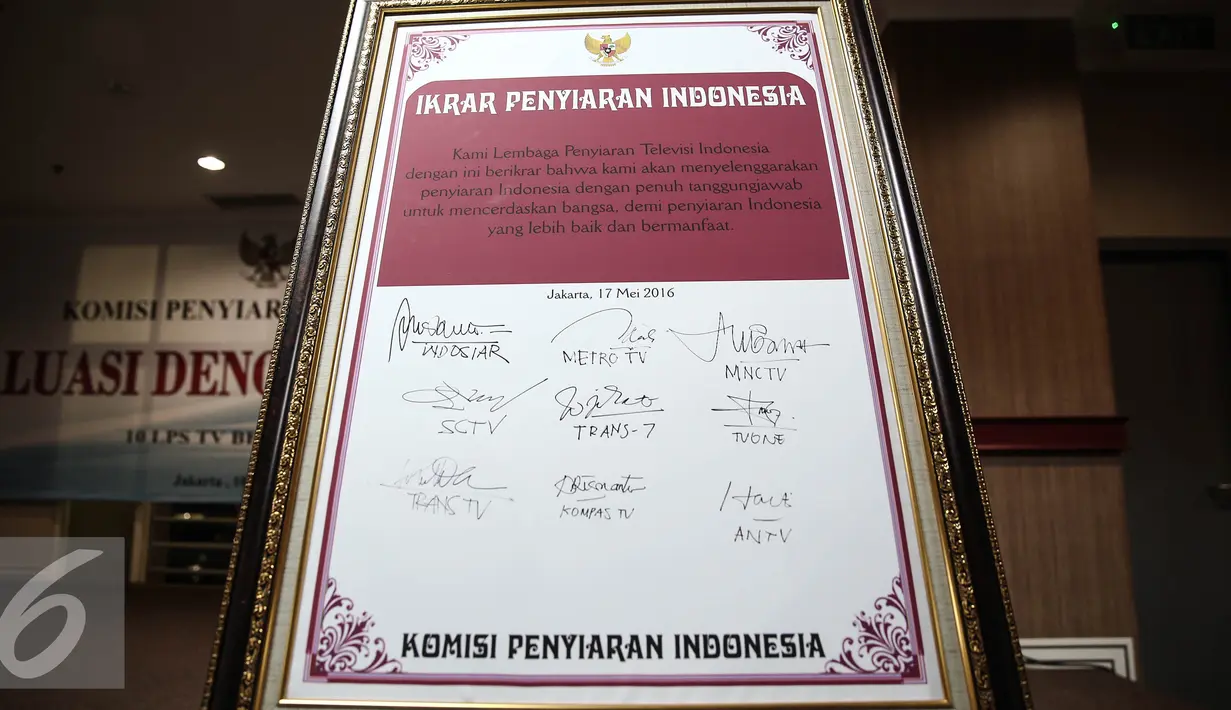 IKRAR PENYIARAN INDONESIA
Kami Lembaga Penyiaran Televisi Indonesia
dengan ini berikrar bahwa kami akan menyelenggarakan
penyiaran Indonesia dengan penuh tanggungjawab
untuk mencerdaskan bangsa, demi penyiaran Indonesia
yang lebih baik dan bermanfaat.
Jakarta, 17 Mei 2016
INDOSIAR METRO TV MNCTV
SCTV TRANS-7 TVONE
TRANS TV KOMPAS TV ANTV
KOMISI PENYIARAN INDONESIA
KOMISI PENYIAR
LUASI DENG
10 LPS TV BE
Jakarta,
6